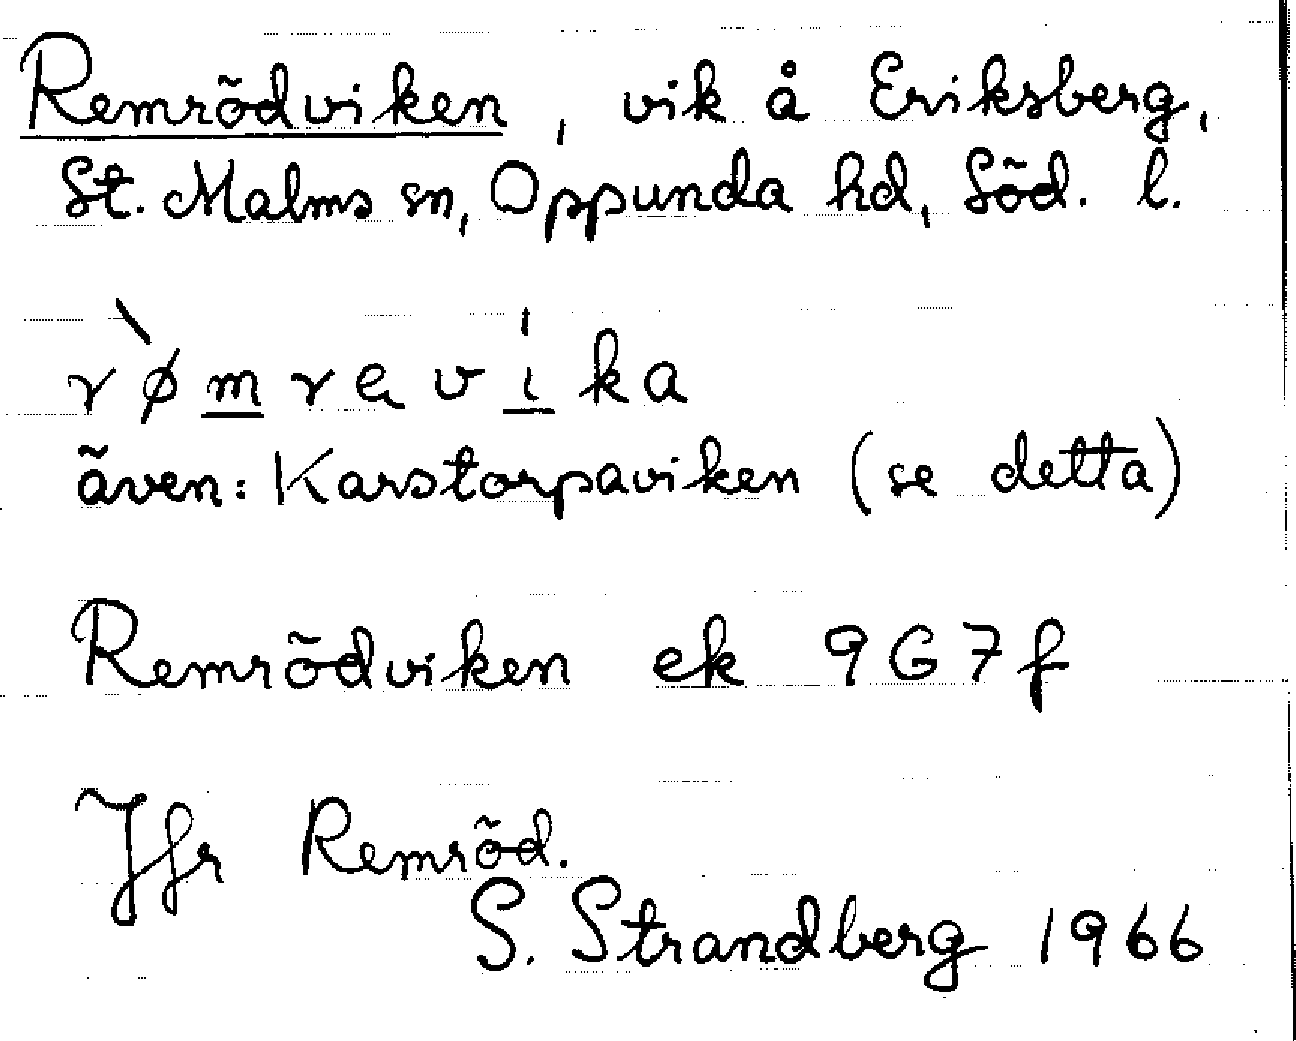 Remrödviken, vik å Eriksberg,
St. Malms sn, Oppunda hd, Söd. l.
rø̀mrɐvi̍ka
även: Karstorpaviken (se detta)
Remrödviken ek 9G7f
Jfr Remröd.
S. Strandberg 1966